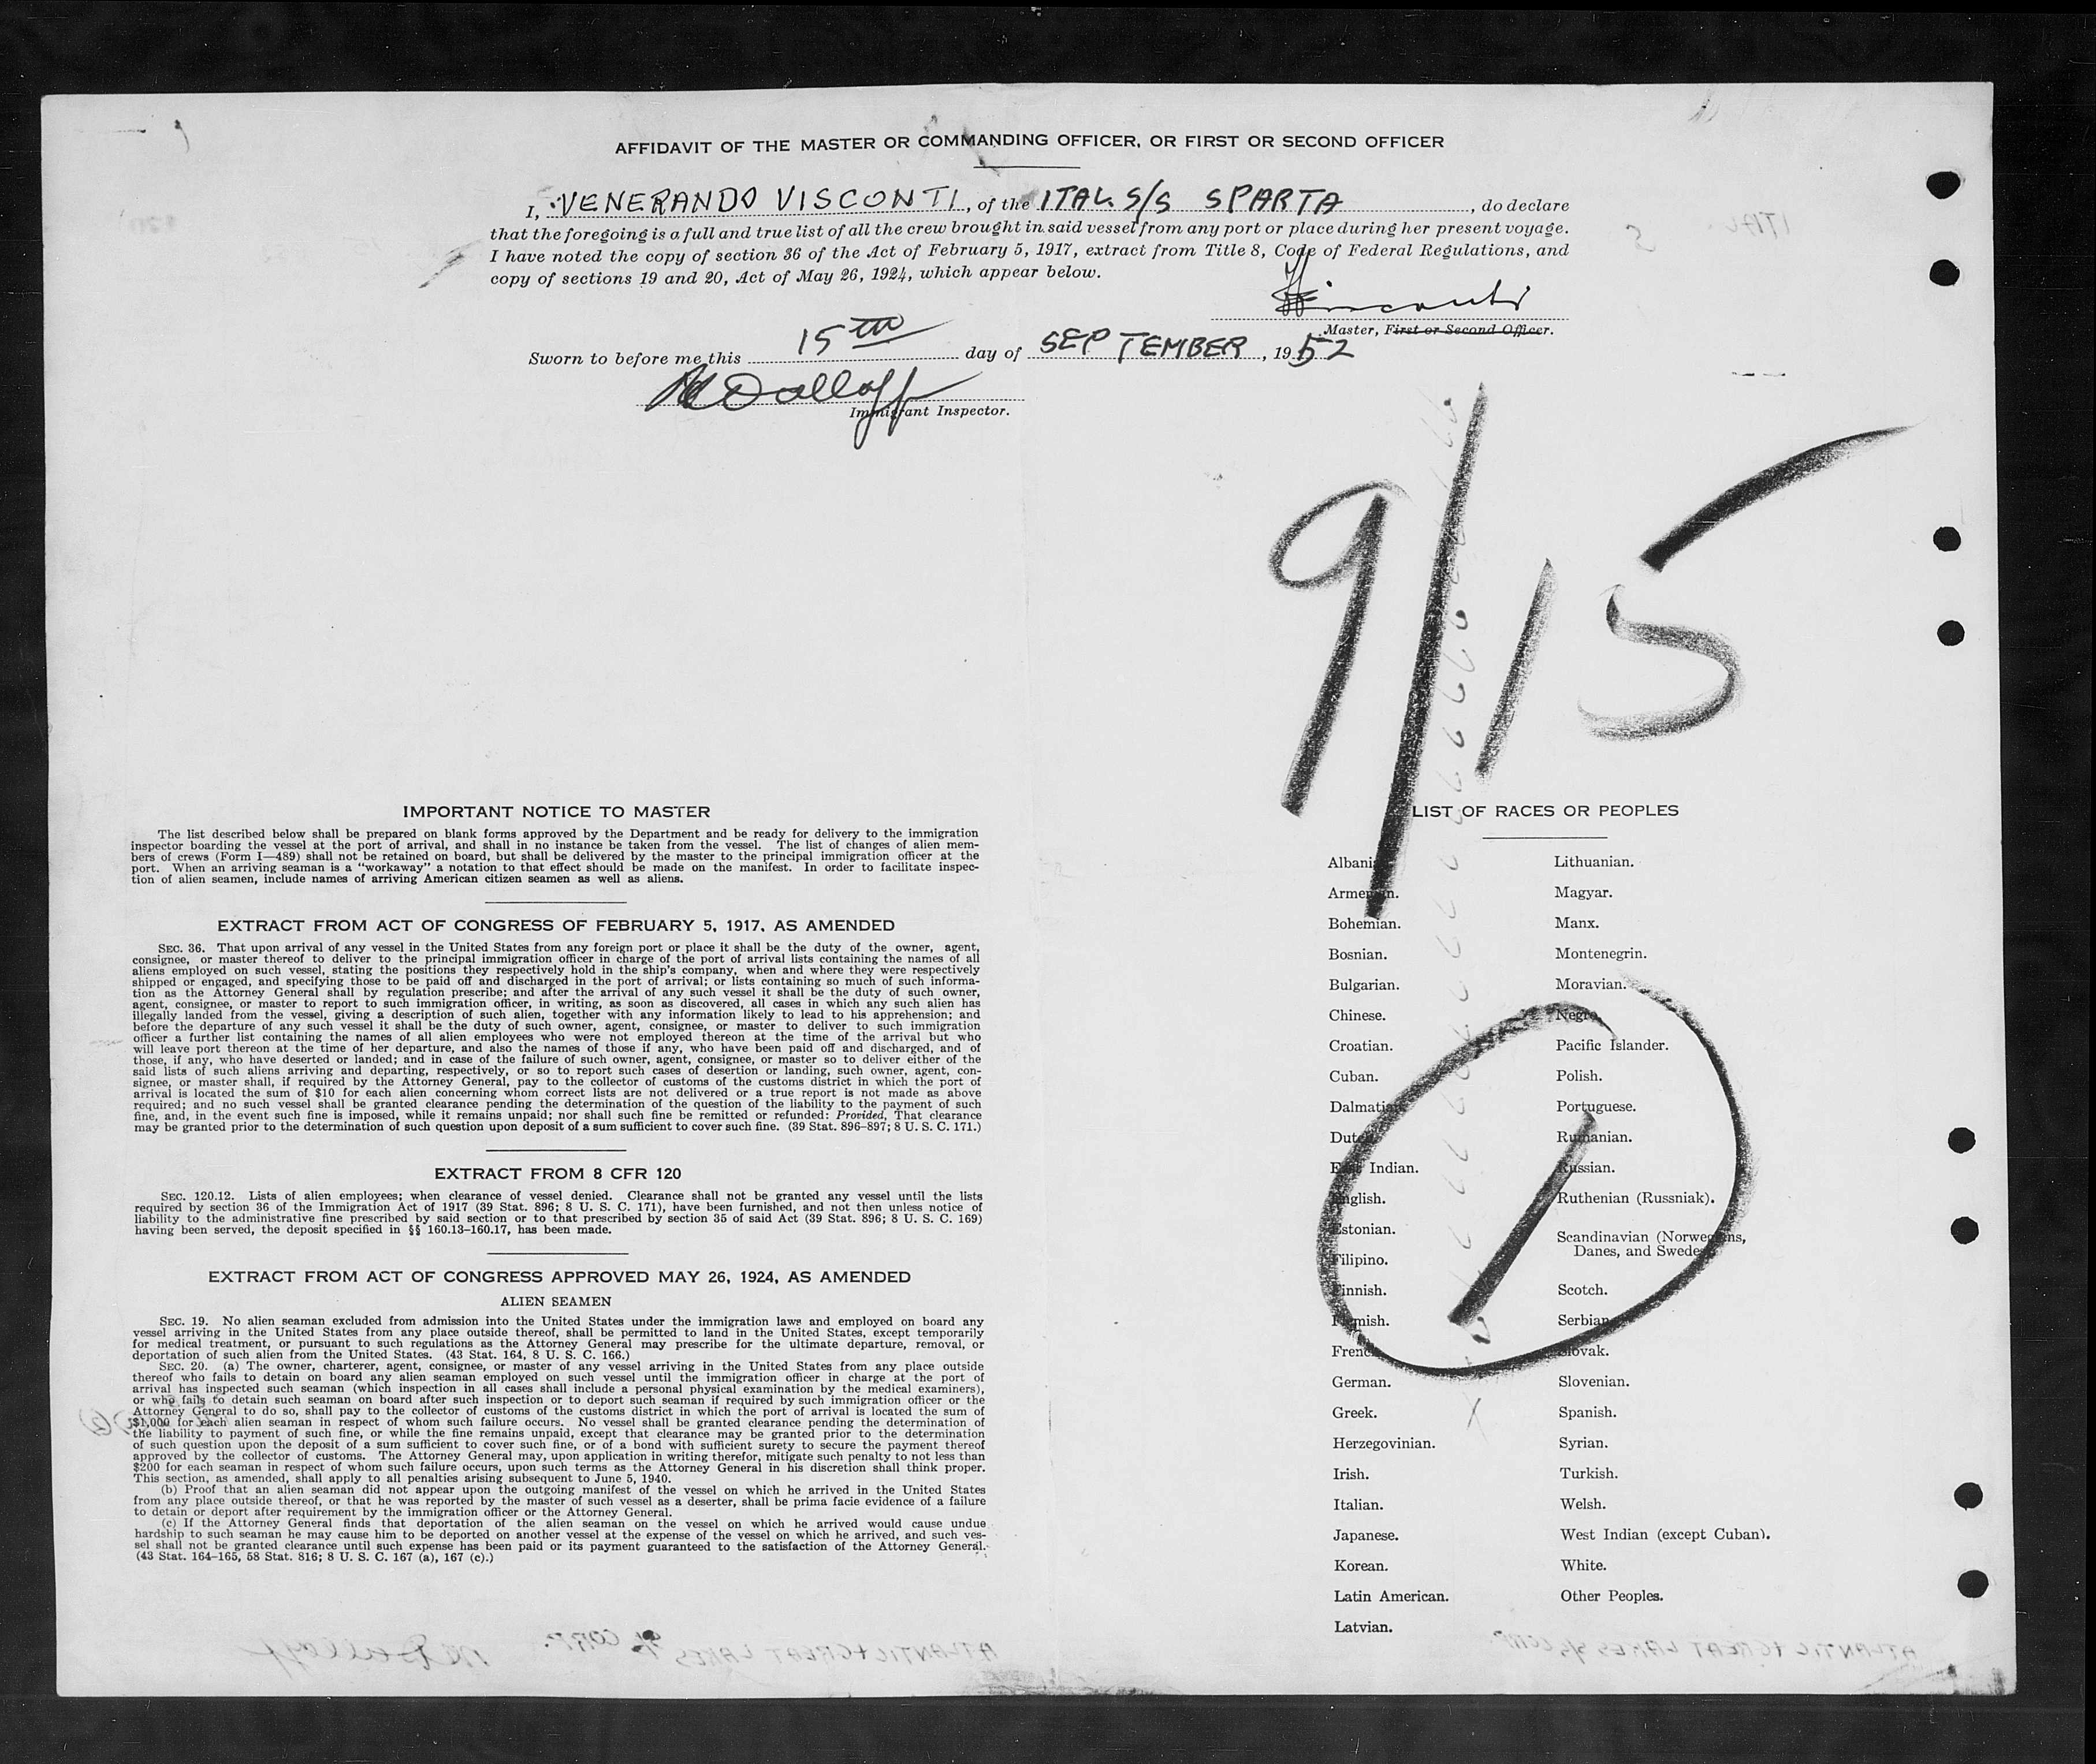 AFFIDAVIT OF THE MASTER OR COMMANDING OFFICER, OR FIRST OR SECOND OFFICER
I, VENERANDO VISCONTI, of the ITAL. S/S SPARTA, do declare
that the foregoing is a full and true list of all the crew brought in said vessel from any port or place during her present voyage.
I have noted the copy of section 36 of the Act of February 5, 1917, extract from Title 8, Code of Federal Regulations, and
copy of sections 19 and 20, Act of May 26, 1924, which appear below.
Visconti
Master, First or Second Officer.
Sworn to before me this 15TH day of SEPTEMBER, 1952
Immigrant Inspector.
9/15
IMPORTANT NOTICE TO MASTER
The list described below shall be prepared on blank forms approved by the Department and be ready for delivery to the immigration
inspector boarding the vessel at the port of arrival, and shall in no instance be taken from the vessel. The list of changes of alien mem-
bers of crews (Form I—489) shall not be retained on board, but shall be delivered by the master to the principal immigration officer at the
port. When an arriving seaman is a "workaway" a notation to that effect should be made on the manifest. In order to facilitate inspec-
tion of alien seamen, include names of arriving American citizen seamen as well as aliens.
EXTRACT FROM ACT OF CONGRESS OF FEBRUARY 5, 1917, AS AMENDED
SEC. 36. That upon arrival of any vessel in the United States from any foreign port or place it shall be the duty of the owner, agent,
consignee, or master thereof to deliver to the principal immigration officer in charge of the port of arrival lists containing the names of all
aliens employed on such vessel, stating the positions they respectively hold in the ship's company, when and where they were respectively
shipped or engaged, and specifying those to be paid off and discharged in the port of arrival; or lists containing so much of such informa-
tion as the Attorney General shall by regulation prescribe; and after the arrival of any such vessel it shall be the duty of such owner,
agent, consignee, or master to report to such immigration officer, in writing, as soon as discovered, all cases in which any such alien has
illegally landed from the vessel, giving a description of such alien, together with any information likely to lead to his apprehension; and
before the departure of any such vessel it shall be the duty of such owner, agent, consignee, or master to deliver to such immigration
officer a further list containing the names of all alien employees who were not employed thereon at the time of the arrival but who
will leave port thereon at the time of her departure, and also the names of those if any, who have been paid off and discharged, and of
those, if any, who have deserted or landed; and in case of the failure of such owner, agent, consignee, or master so to deliver either of the
said lists of such aliens arriving and departing, respectively, or so to report such cases of desertion or landing, such owner, agent, con-
signee, or master shall, if required by the Attorney General, pay to the collector of customs of the customs district in which the port of
arrival is located the sum of $10 for each alien concerning whom correct lists are not delivered or a true report is not made as above
required; and no such vessel shall be granted clearance pending the determination of the question of the liability to the payment of such
fine, and, in the event such fine is imposed, while it remains unpaid; nor shall such fine be remitted or refunded: Provided, That clearance
may be granted prior to the determination of such question upon deposit of a sum sufficient to cover such fine. (39 Stat. 896-897; 8 U. S. C. 171.)
EXTRACT FROM 8 CFR 120
SEC. 120.12. Lists of alien employees; when clearance of vessel denied. Clearance shall not be granted any vessel until the lists
required by section 36 of the Immigration Act of 1917 (39 Stat. 896; 8 U. S. C. 171), have been furnished, and not then unless notice of
liability to the administrative fine prescribed by said section or to that prescribed by section 35 of said Act (39 Stat. 896; 8 U. S. C. 169)
having been served, the deposit specified in §§ 160.13-160.17, has been made.
EXTRACT FROM ACT OF CONGRESS APPROVED MAY 26, 1924, AS AMENDED
ALIEN SEAMEN
SEC. 19. No alien seaman excluded from admission into the United States under the immigration laws and employed on board any
vessel arriving in the United States from any place outside thereof, shall be permitted to land in the United States, except temporarily
for medical treatment, or pursuant to such regulations as the Attorney General may prescribe for the ultimate departure, removal, or
deportation of such alien from the United States. (43 Stat. 164, 8 U. S. C. 166.)
SEC. 20. (a) The owner, charterer, agent, consignee, or master of any vessel arriving in the United States from any place outside
thereof who fails to detain on board any alien seaman employed on such vessel until the immigration officer in charge at the port of
arrival has inspected such seaman (which inspection in all cases shall include a personal physical examination by the medical examiners),
or who fails to detain such seaman on board after such inspection or to deport such seaman if required by such immigration officer or the
Attorney General to do so, shall pay to the collector of customs of the customs district in which the port of arrival is located the sum of
$1,000 for each alien seaman in respect of whom such failure occurs. No vessel shall be granted clearance pending the determination of
the liability to payment of such fine, or while the fine remains unpaid, except that clearance may be granted prior to the determination
of such question upon the deposit of a sum sufficient to cover such fine, or of a bond with sufficient surety to secure the payment thereof
approved by the collector of customs. The Attorney General may, upon application in writing therefor, mitigate such penalty to not less than
$200 for each seaman in respect of whom such failure occurs, upon such terms as the Attorney General in his discretion shall think proper.
This section, as amended, shall apply to all penalties arising subsequent to June 5, 1940.
(b) Proof that an alien seaman did not appear upon the outgoing manifest of the vessel on which he arrived in the United States
from any place outside thereof, or that he was reported by the master of such vessel as a deserter, shall be prima facie evidence of a failure
to detain or deport after requirement by the immigration officer or the Attorney General.
(c) If the Attorney General finds that deportation of the alien seaman on the vessel on which he arrived would cause undue
hardship to such seaman he may cause him to be deported on another vessel at the expense of the vessel on which he arrived, and such ves-
sel shall not be granted clearance until such expense has been paid or its payment guaranteed to the satisfaction of the Attorney General.
(43 Stat. 164-165, 58 Stat. 816; 8 U. S. C. 167 (a), 167 (c).)
LIST OF RACES OR PEOPLES
Albanian.
Armenian.
Bohemian.
Bosnian.
Bulgarian.
Chinese.
Croatian.
Cuban.
Dalmatian.
Dutch.
East Indian.
English.
Estonian.
Filipino.
Finnish.
Flemish.
French.
German.
Greek.
Herzegovinian.
Irish.
Italian.
Japanese.
Korean.
Latin American.
Latvian.
Lithuanian.
Magyar.
Manx.
Montenegrin.
Moravian.
Negro.
Pacific Islander.
Polish.
Portuguese.
Rumanian.
Russian.
Ruthenian (Russniak).
Scandinavian (Norwegians,
Danes, and Swedes).
Scotch.
Serbian.
Slovak.
Slovenian.
Spanish.
Syrian.
Turkish.
Welsh.
West Indian (except Cuban).
White.
Other Peoples.
1